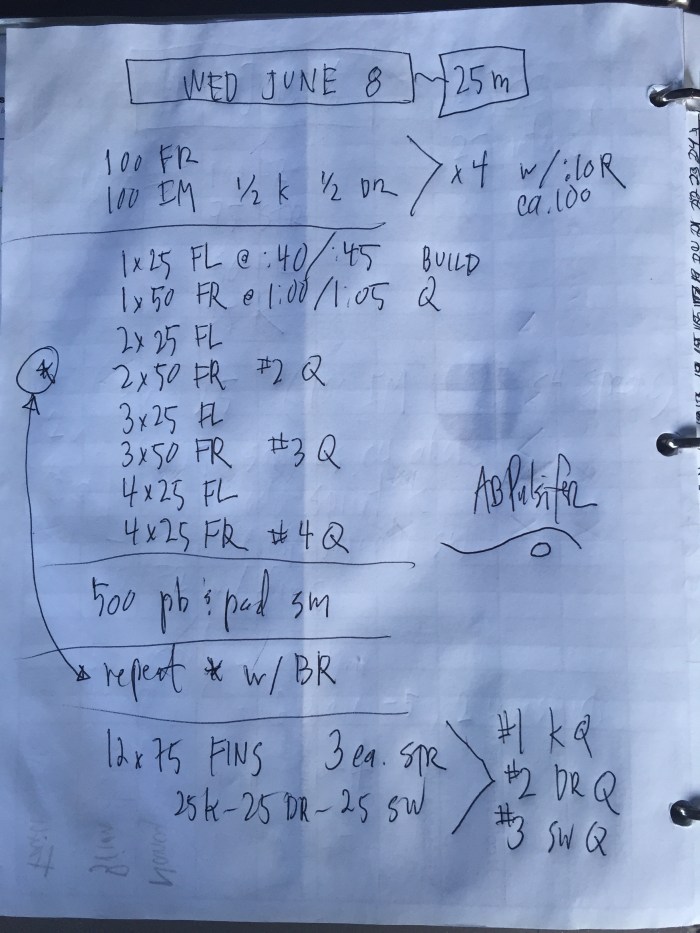 WED JUNE 8 ~ 25m
100 FR
100 IM ½ K ½ DR > x4 w/:10R
ea.100
1x25 FL @ :40/:45 BUILD
1x50 FR @ 1:00/1:05 Q
2x25 FL
2x50 FR #2 Q
3x25 FL
3x50 FR #3 Q
4x25 FL
4x25 FR #4 Q
ABPulsifer
500 pb & pad sm
* repeat * w/ BR
12x75 FINS 3 ea. STR
25K-25 DR-25 SW
#1 K Q
#2 DR Q
#3 SW Q